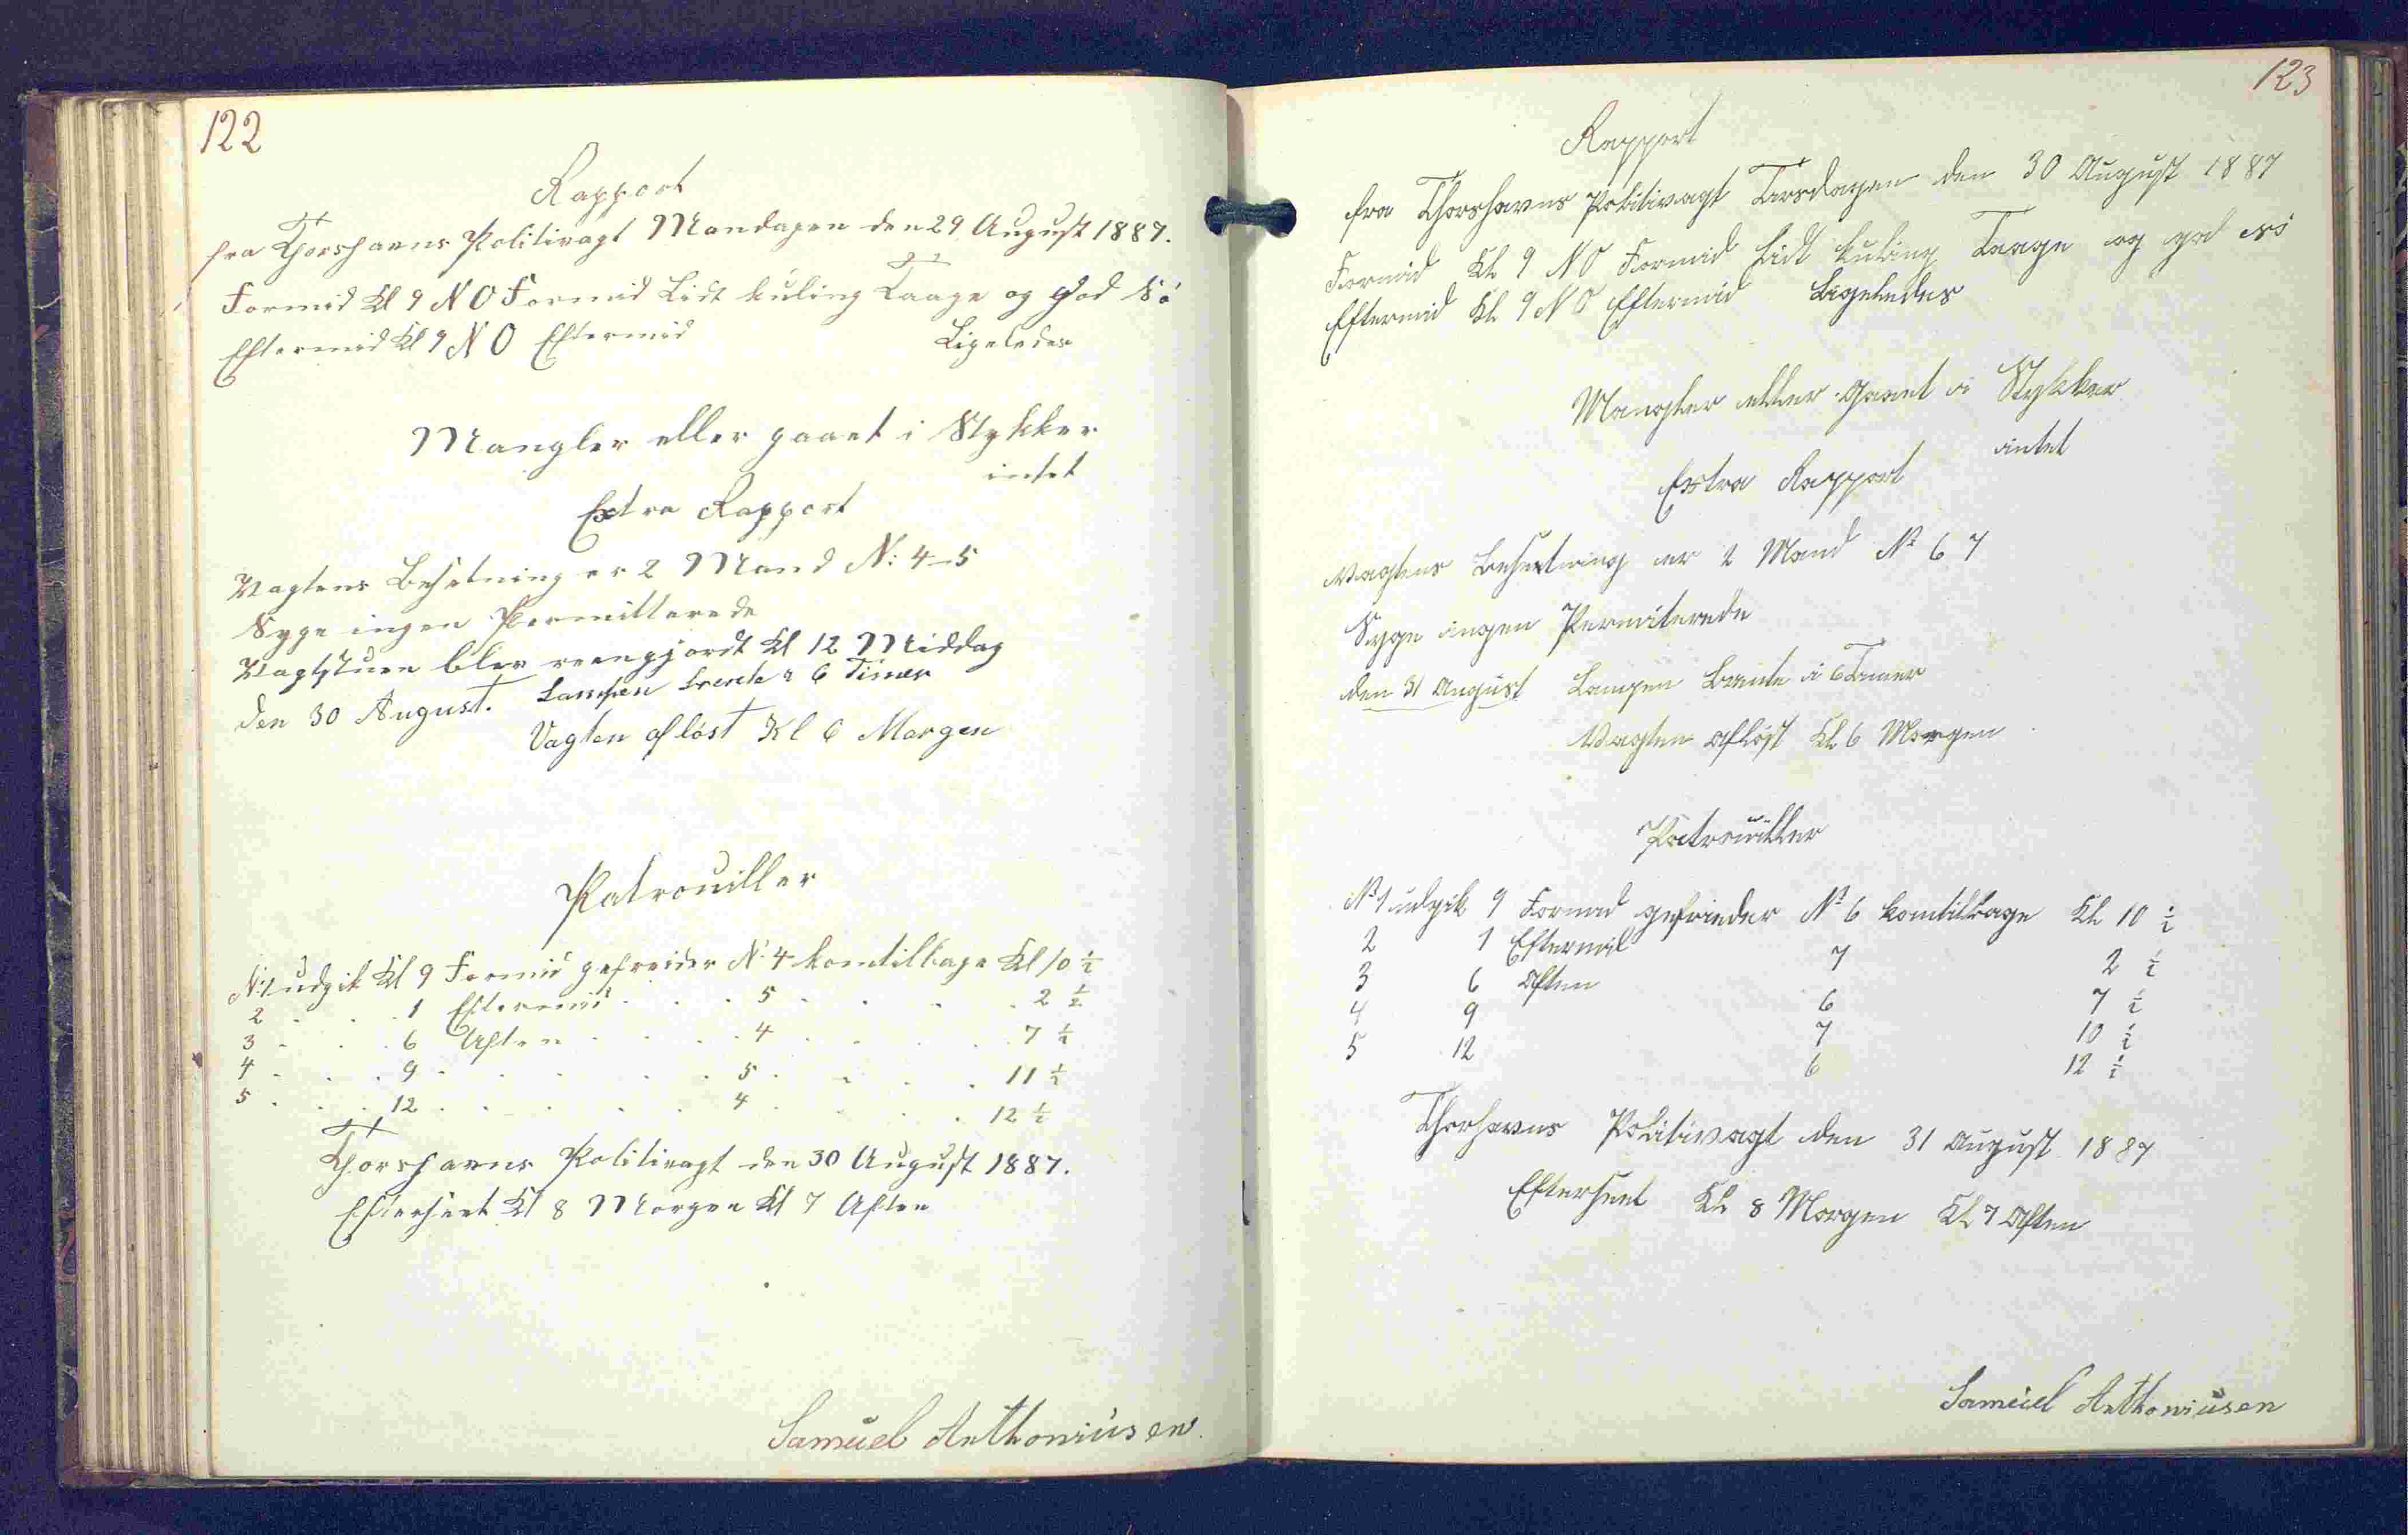 122
Rapport
fra Thorshavns Politivagt Mandagen den 29 August 1887.
Formid Kl 9 NO Formid Lidt kuling Taage og god Sö
Eftermid Kl 9 NO Eftermid Ligeledes
Mangler eller gaaet i Stykker
intet
Extra Rapport
Vagtens Besetning er 2 Mand N: 4-5
Syge ingen Permitterede
Vagtstuen blev reengjordt Kl 12 Middag
den 30 August. Lampen brente i 6 Timer
Vagten aflöst Kl 6 Morgen
Patrouiller
N:1 udgik Kl 9 Formid gefreider N: 4 komtilbage Kl 10 ½
2 . . . 1 Eftermid . . . 5 . . . . 2 ½
3 . . . 6 Aften . . . . 4 . . . . 7 ½
4 . . . 9 . . . . . . 5 . . . . 11 ½
5 . . . 12 . . . . . . 4 . . . . 12 ½
Thorshavns Politivagt den 30 August 1887.
Efterseet Kl 8 Morgen Kl 7 Aften
Samuel Anthoniusen.
123
Rapport
fra Thorshavns Politivagt Tirsdagen den 30 August 1887
Formid Kl 9 NO Formid Lidt kuling Taage og god sö
Eftermid Kl 9 NO Eftermid Ligeledes
Mangler eller gaaet i Stykker
intet
Extra Rapport
Vagtens Besetning er 2 Mand No 6 7
Syge ingen Permiterede
den 31 August Lampen Brente i 6 Timer
Vagten aflöst Kl 6 Morgen
Patrouiller
No 1 udgik 9 Formid gefreider No 6 komtilbage Kl 10 ½
2 1 Eftermid 7 2 ½
3 6 Aften 6 7 ½
4 9 7 10 ½
5 12 6 12 ½
Thorhavns Politivagt den 31 August 1887
Efterseet Kl 8 Morgen Kl 7 Aften
Samuel Anthoniusen